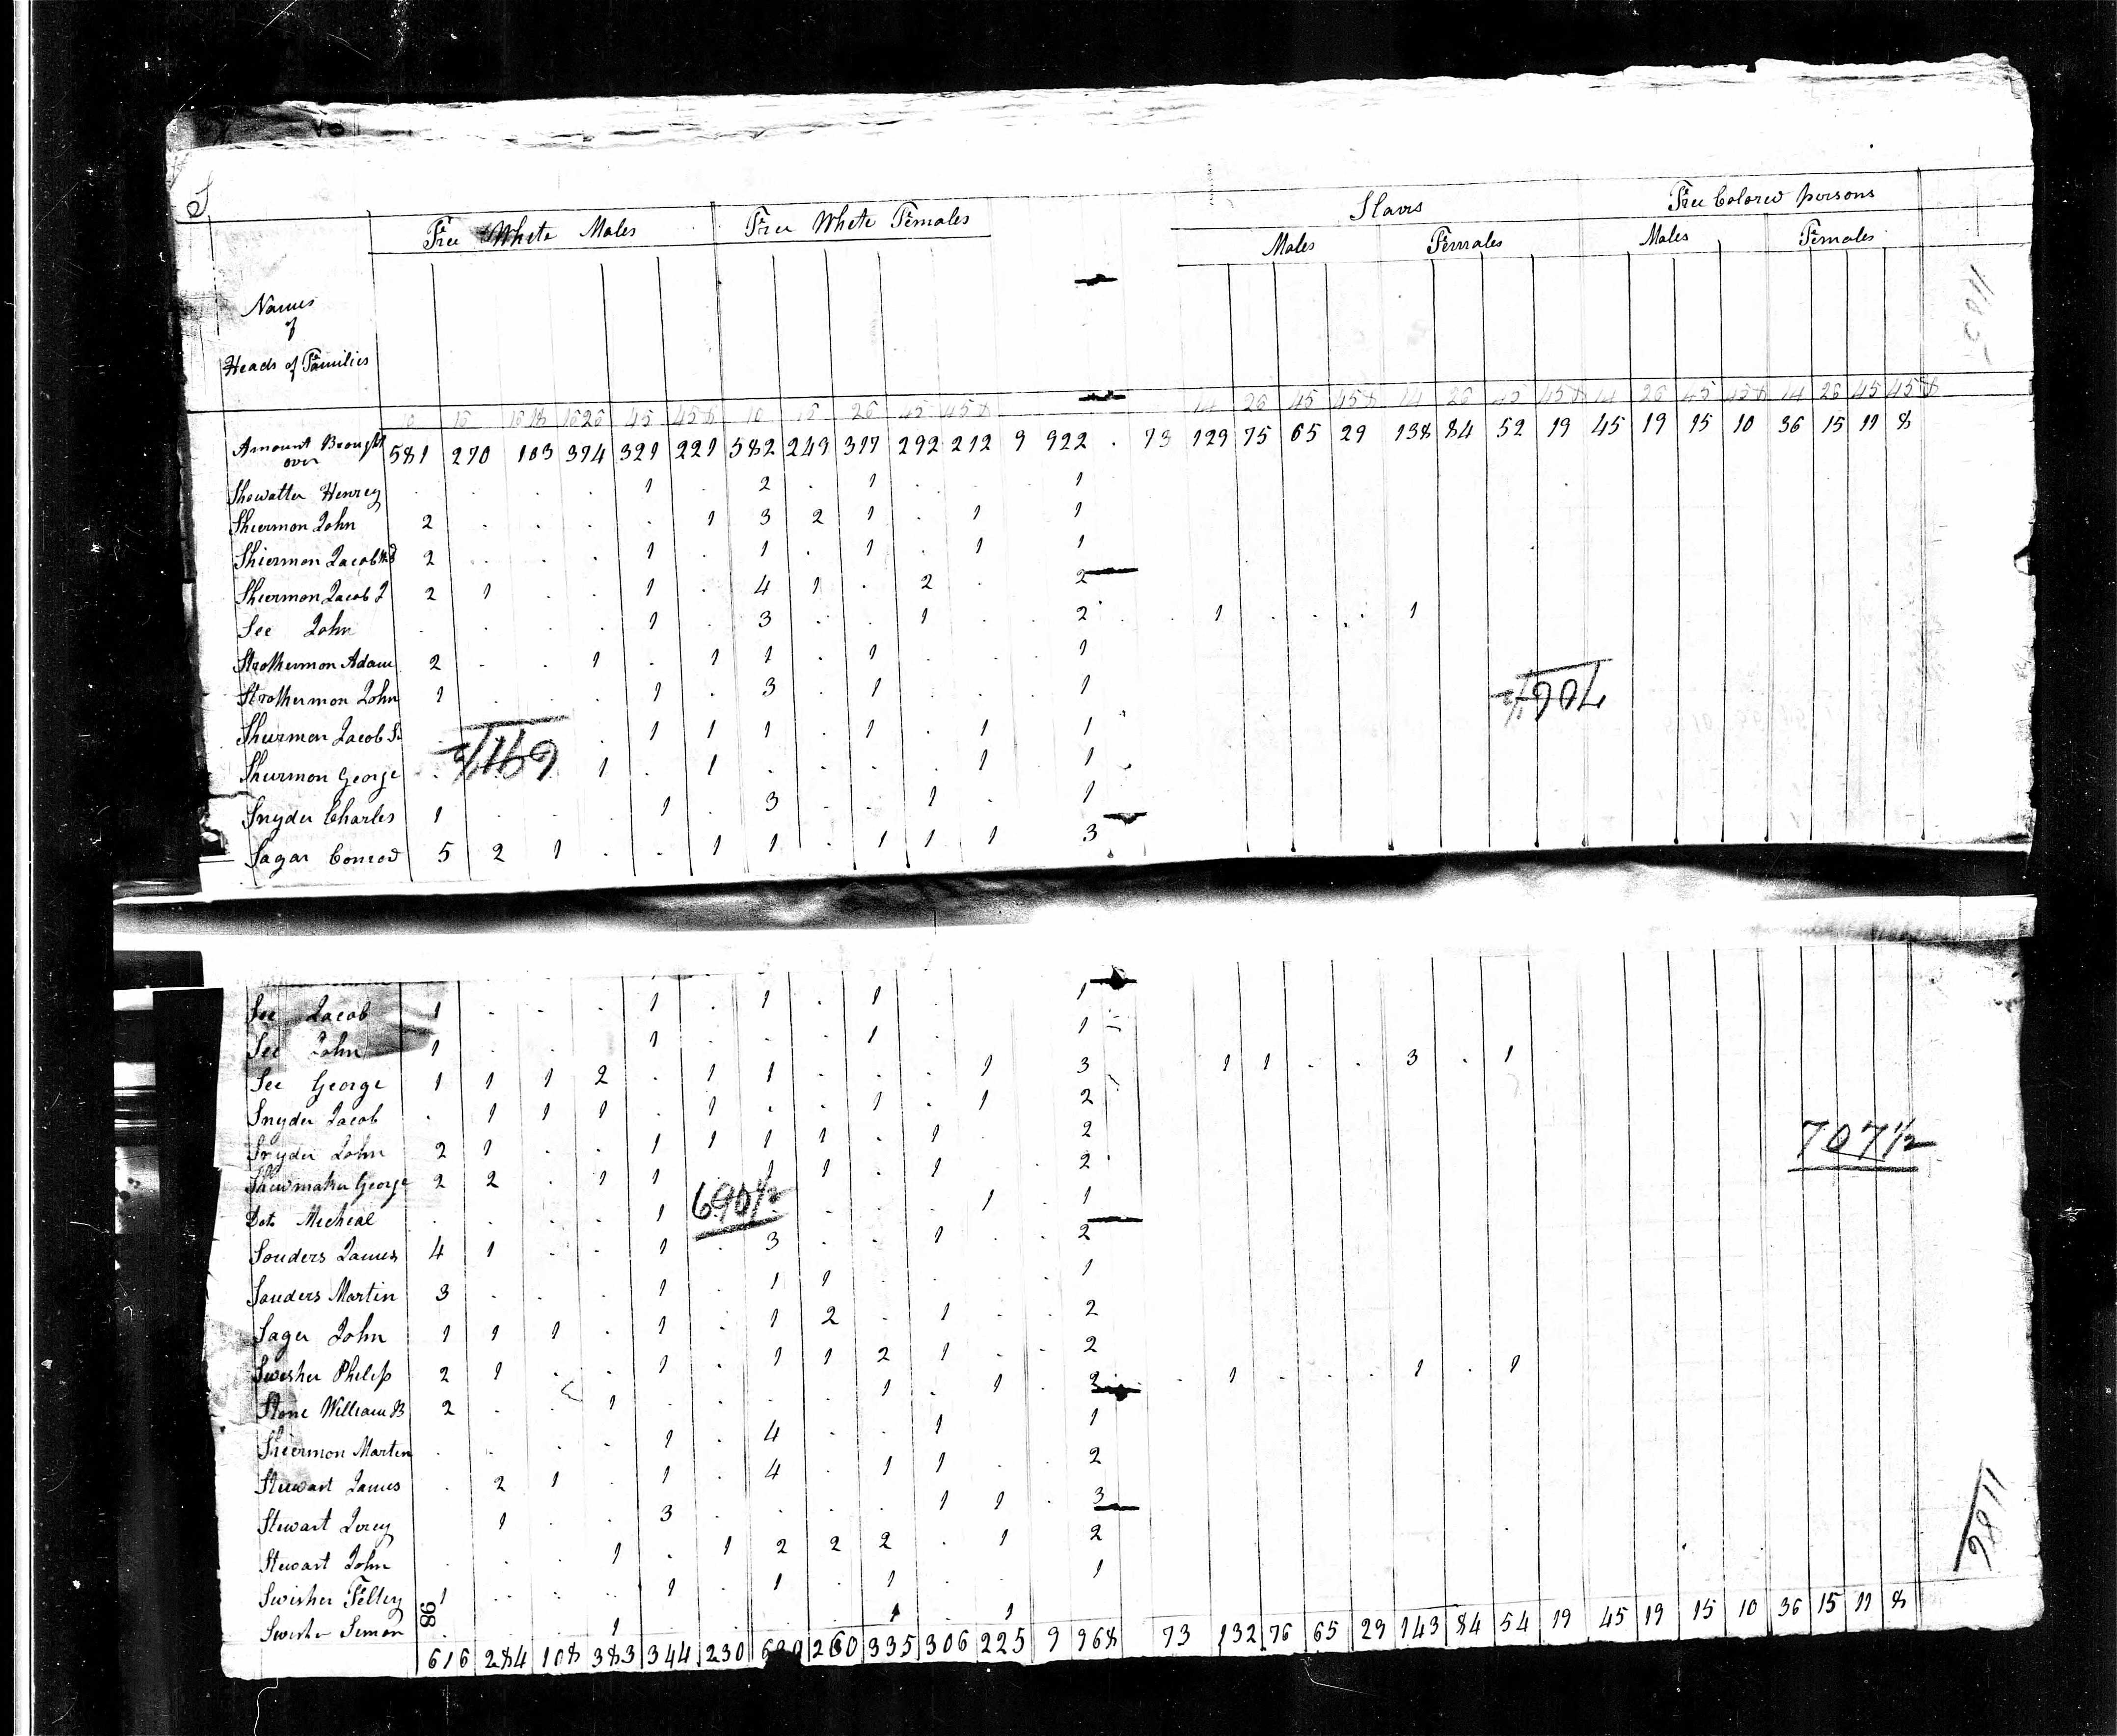 S
Free White Males Free White Females Slaves Free Colored persons
Males Females Males Females
Names
of
Heads of Families
10 16 16 18 16 26 45 45 & 10 16 26 45 45 & 14 26 45 45 & 14 26 45 45 & 14 26 45 45 & 14 26 45 45 &
Amount Brought over 581 270 103 374 321 221 582 249 317 292 212 9 922 . 73 129 75 65 29 138 84 52 19 45 19 15 10 36 15 11 8
Showalter Henrey . . . . 1 . 2 . 1 . . 1
Shiermon John 2 . . . . 1 3 2 1 . 1 1
Shiermon Jacob 2 . . . 1 . 1 . 1 . 1 1
Shiermon Jacob J 2 1 . . 1 . 4 1 . 2 . 2
See John . . . . 1 . 3 . . 1 . . 2 . . 1 . . . . 1
Strothermon Adam 2 . . 1 . 1 1 . 1 . . . 1
Strothermon John 1 . . . 1 . 3 . 1 . . . 1
706 1/2
Shiermon Jacob Sr . 1 1 1 . 1 . 1 1
691 1/2
Shiermon George . 1 . 1 . . . . 1 1
Snyder Charles 1 . . . 1 . 3 . . 1 . 1
Sagar Conrod 5 2 1 . . 1 1 . 1 1 1 3
See Jacob 1 . . . 1 . 1 . 1 . 1
See John 1 . . . 1 . . . 1 1
See George 1 1 1 2 . 1 1 . . . 1 3 . 1 1 . . 3 . 1
Snyder Jacob . 1 1 1 . 1 . . 1 . 1 2
Snyder John 2 1 . . 1 1 1 1 . 1 2
707 1/2
Shewmaker George 2 2 . 1 1 1 1 . 1 . 2
690 1/2
Do to Micheal . . . . 1 . . . 1 1
Souders James 4 1 . . 1 . 3 . . 1 . . 2
Souders Martin 3 . . . 1 . 1 1 . . . . 1
Sager John 1 1 1 . 1 . 1 2 . 1 . . 2
Swisher Philip 2 1 . . 1 . 1 1 2 1 . . 2
Stone William B 2 . . 1 . . . . 1 . 1 . 2 . 1 . . . 1 . 1
Shiermon Martin . . . . 1 . 4 . . 1 1
Stewart James . 2 1 . 1 . 4 . 1 1 . 2
Stewart 1 3 . . . . 1 1 . 3
Stewart John . . . 1 . 1 2 2 2 . 1 2
Swisher Feltey 1 . . . 1 . 1 . 1 1
Swisher Simon . 1 . . . 1 1
98
1186
616 284 108 383 344 230 260 335 306 225 9 968 73 132 76 65 29 143 84 54 19 45 19 15 10 36 15 11 8